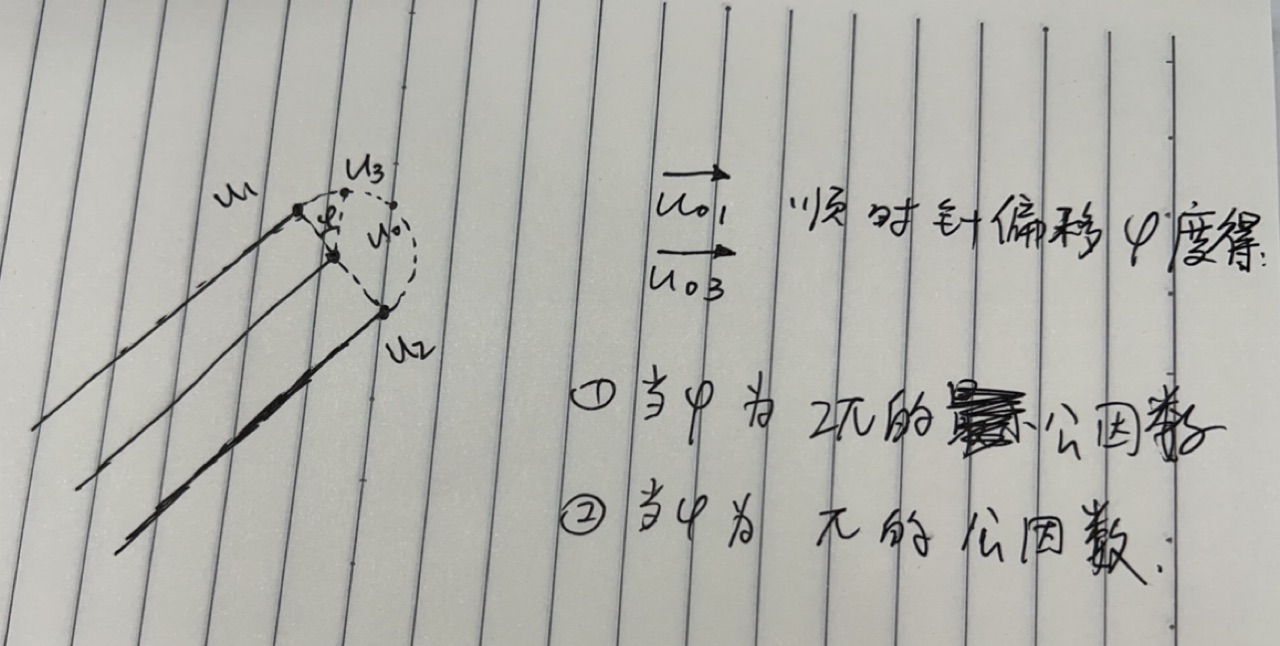 u1
u3
φ
u0
u2
u01 顺时针偏移φ度得:
u03
① 当φ为 2π的 公因数
② 当φ为 π的公因数.